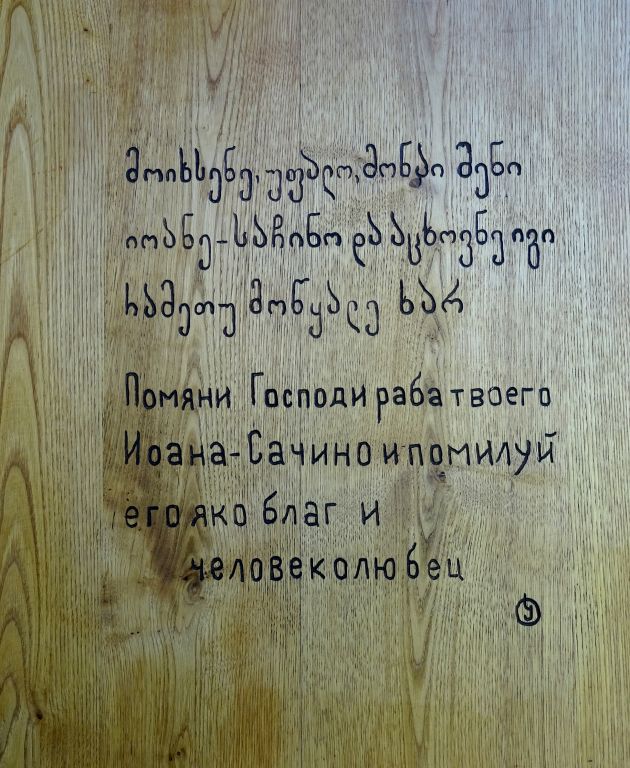 მოიხსენე, უფალო, მონაი შენი
იოანე-საჩინო და აცხოვნე იგი
რამეთუ მოწყალე ხარ
Помяни Господи раба твоего
Иоана-Сачино и помилуй
его яко благ и
человеколюбец